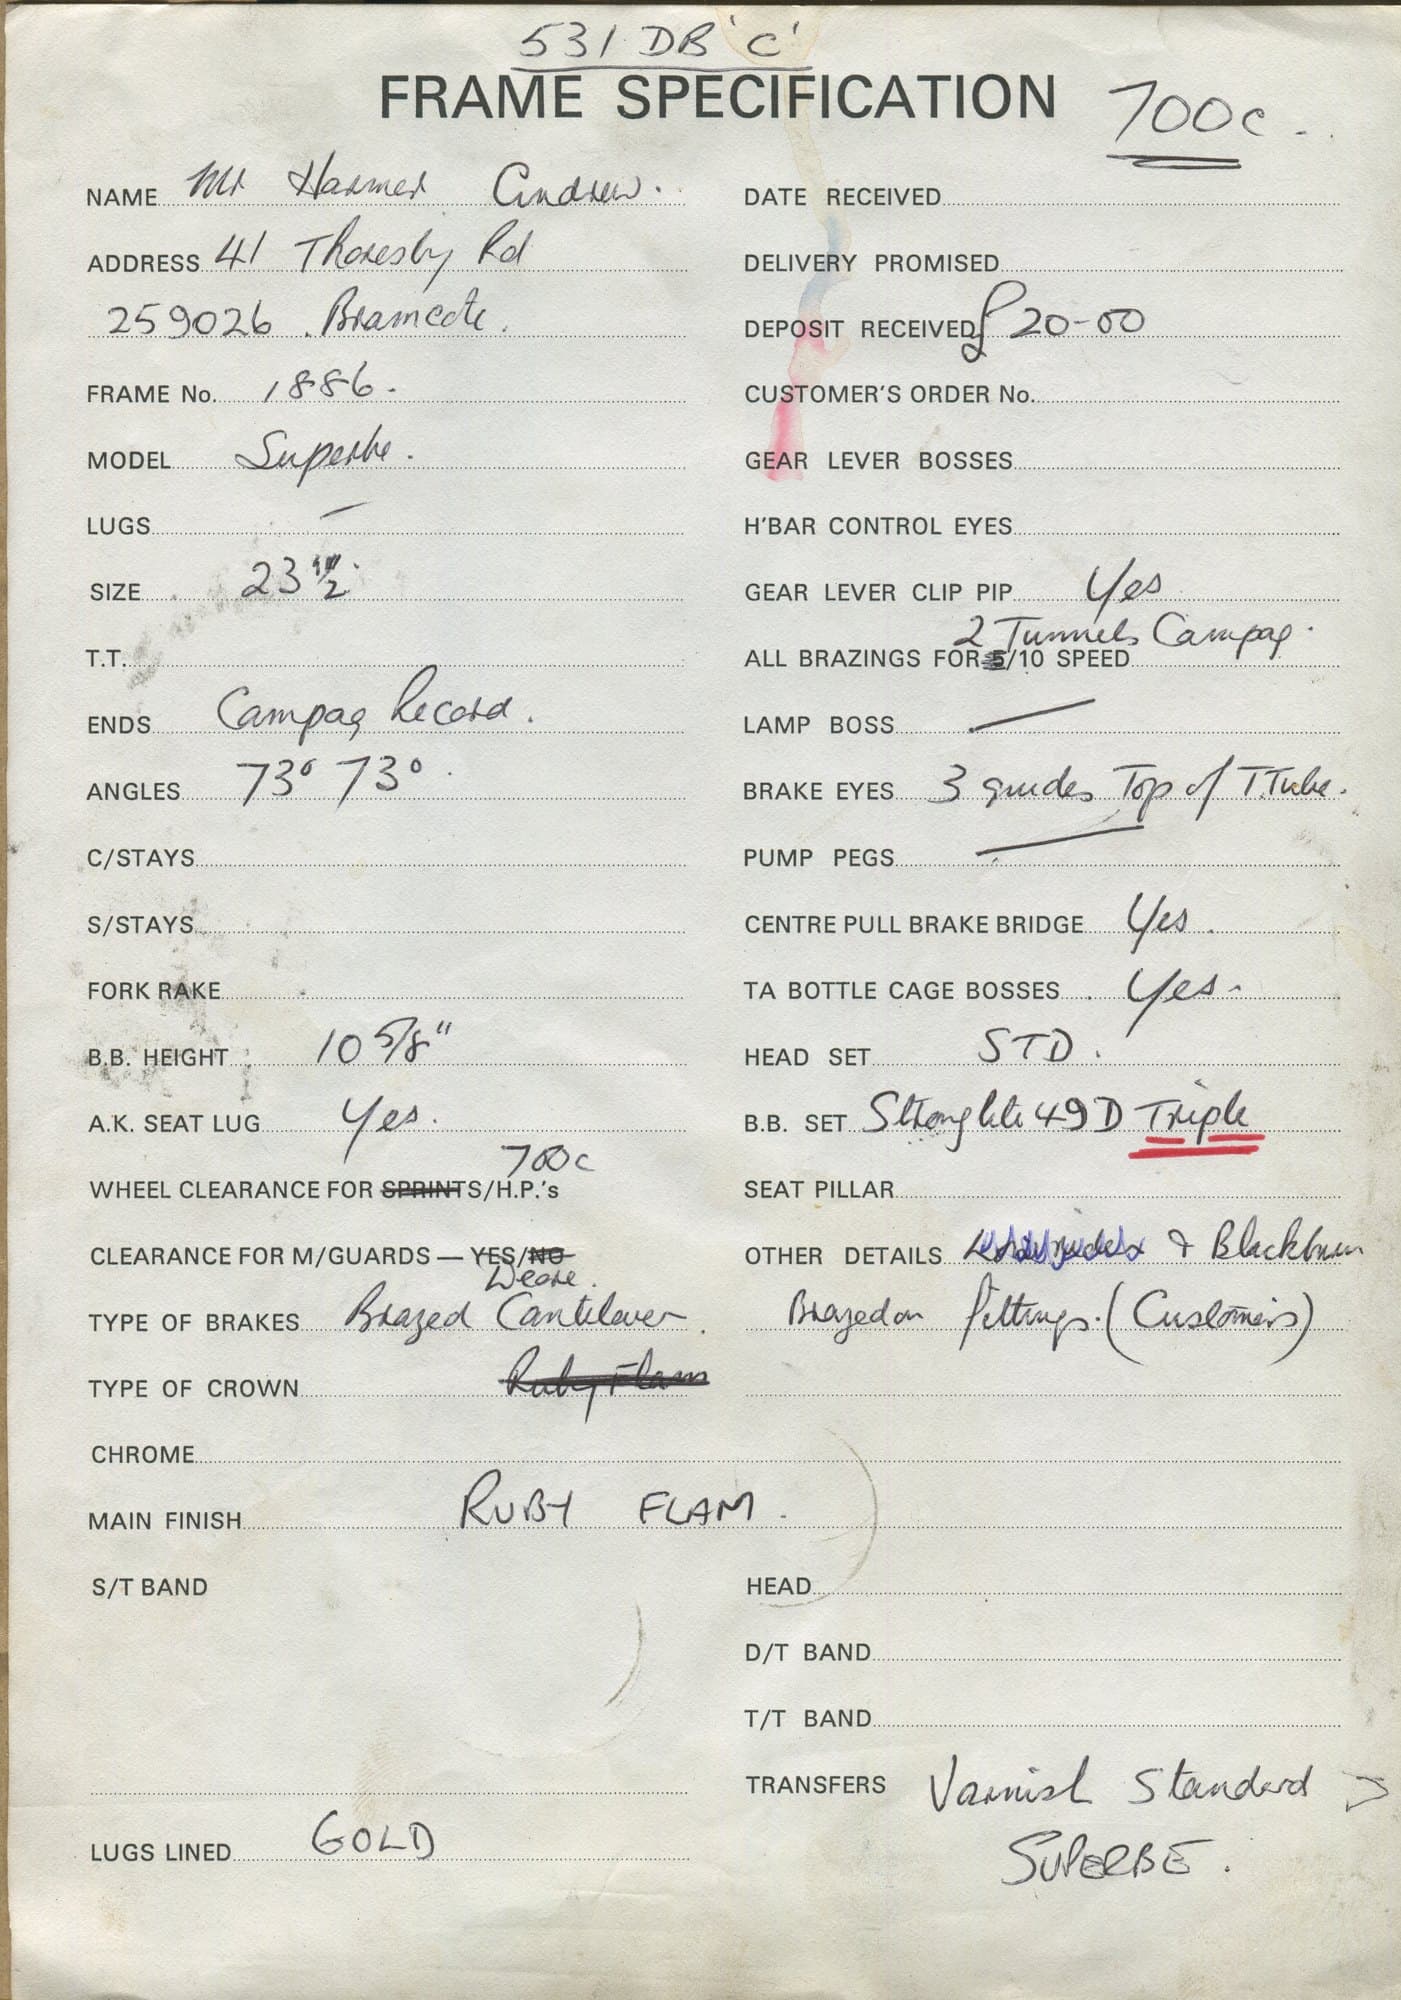 531 DB 'C'
FRAME SPECIFICATION 700c.
NAME Mr Harmer Andrew.
ADDRESS 41 Thoresby Rd
259026 . Bramcote.
FRAME No. 1886.
MODEL Superbe.
LUGS —
SIZE 23 1/2"
T.T.
ENDS Campag Record.
ANGLES 73° 73°.
C/STAYS
S/STAYS
FORK RAKE
B.B. HEIGHT 10 5/8"
A.K. SEAT LUG Yes.
700c
WHEEL CLEARANCE FOR SPRINTS/H.P.'s
CLEARANCE FOR M/GUARDS — YES/NO
TYPE OF BRAKES Brazed Cantilever.
TYPE OF CROWN Ruby Flam
CHROME
MAIN FINISH RUBY FLAM.
S/T BAND
LUGS LINED GOLD
DATE RECEIVED
DELIVERY PROMISED
DEPOSIT RECEIVED £20-00
CUSTOMER'S ORDER No.
GEAR LEVER BOSSES
H'BAR CONTROL EYES
GEAR LEVER CLIP PIP Yes
2 Tunnels Campag.
ALL BRAZINGS FOR 5/10 SPEED
LAMP BOSS —
BRAKE EYES 3 guides Top of T.Tube.
PUMP PEGS —
CENTRE PULL BRAKE BRIDGE Yes.
TA BOTTLE CAGE BOSSES Yes.
HEAD SET STD.
B.B. SET Stronglite 49D Triple
SEAT PILLAR
OTHER DETAILS & Blackburn
Brazed on fittings. (Customers)
HEAD
D/T BAND
T/T BAND
TRANSFERS Varnish Standard >
SUPERBE.